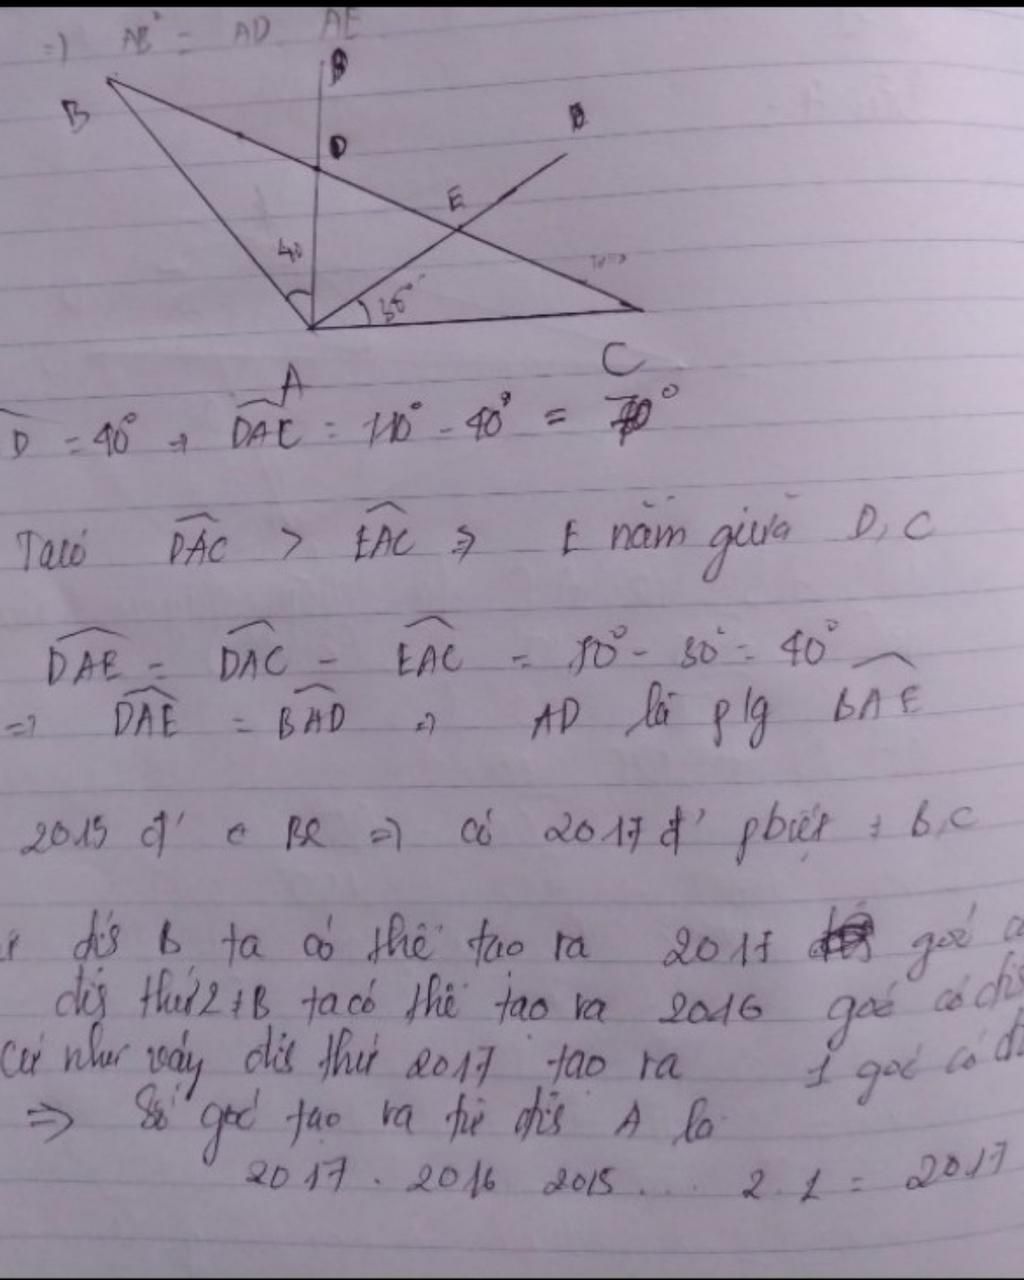 =) AB = AD AE
B
D
E
40
30°
A
C
D = 40° → DAC = 110° - 40° = 70°
Ta có DAC > EAC => E nằm giữa D, C
DAE = DAC - EAC = 70° - 30° = 40°
=> DAE = BAD => AD là p/g BAE
2015 đ' => có 2017 đ' pbiệt + B,C
B ta có thể tạo ra 2017 góc
thứ 2 ≠ B ta có thể tạo ra 2016 góc có
Cứ như vậy thứ 2017 tạo ra 1 góc có
=> Số góc tạo ra từ A là
2017 . 2016 2015 .... 2.1 = 2017